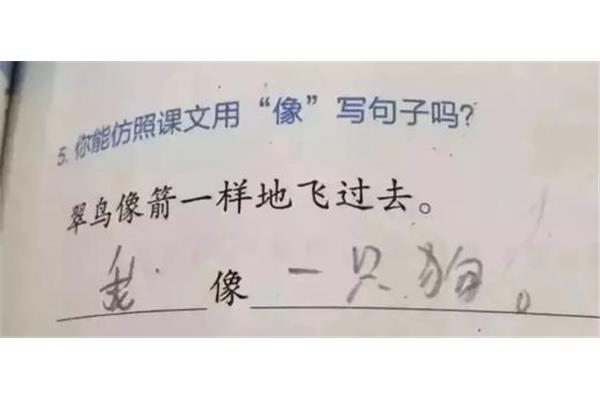 5. 你能仿照课文用“像”写句子吗?
翠鸟像箭一样地飞过去。
像 一只狗。